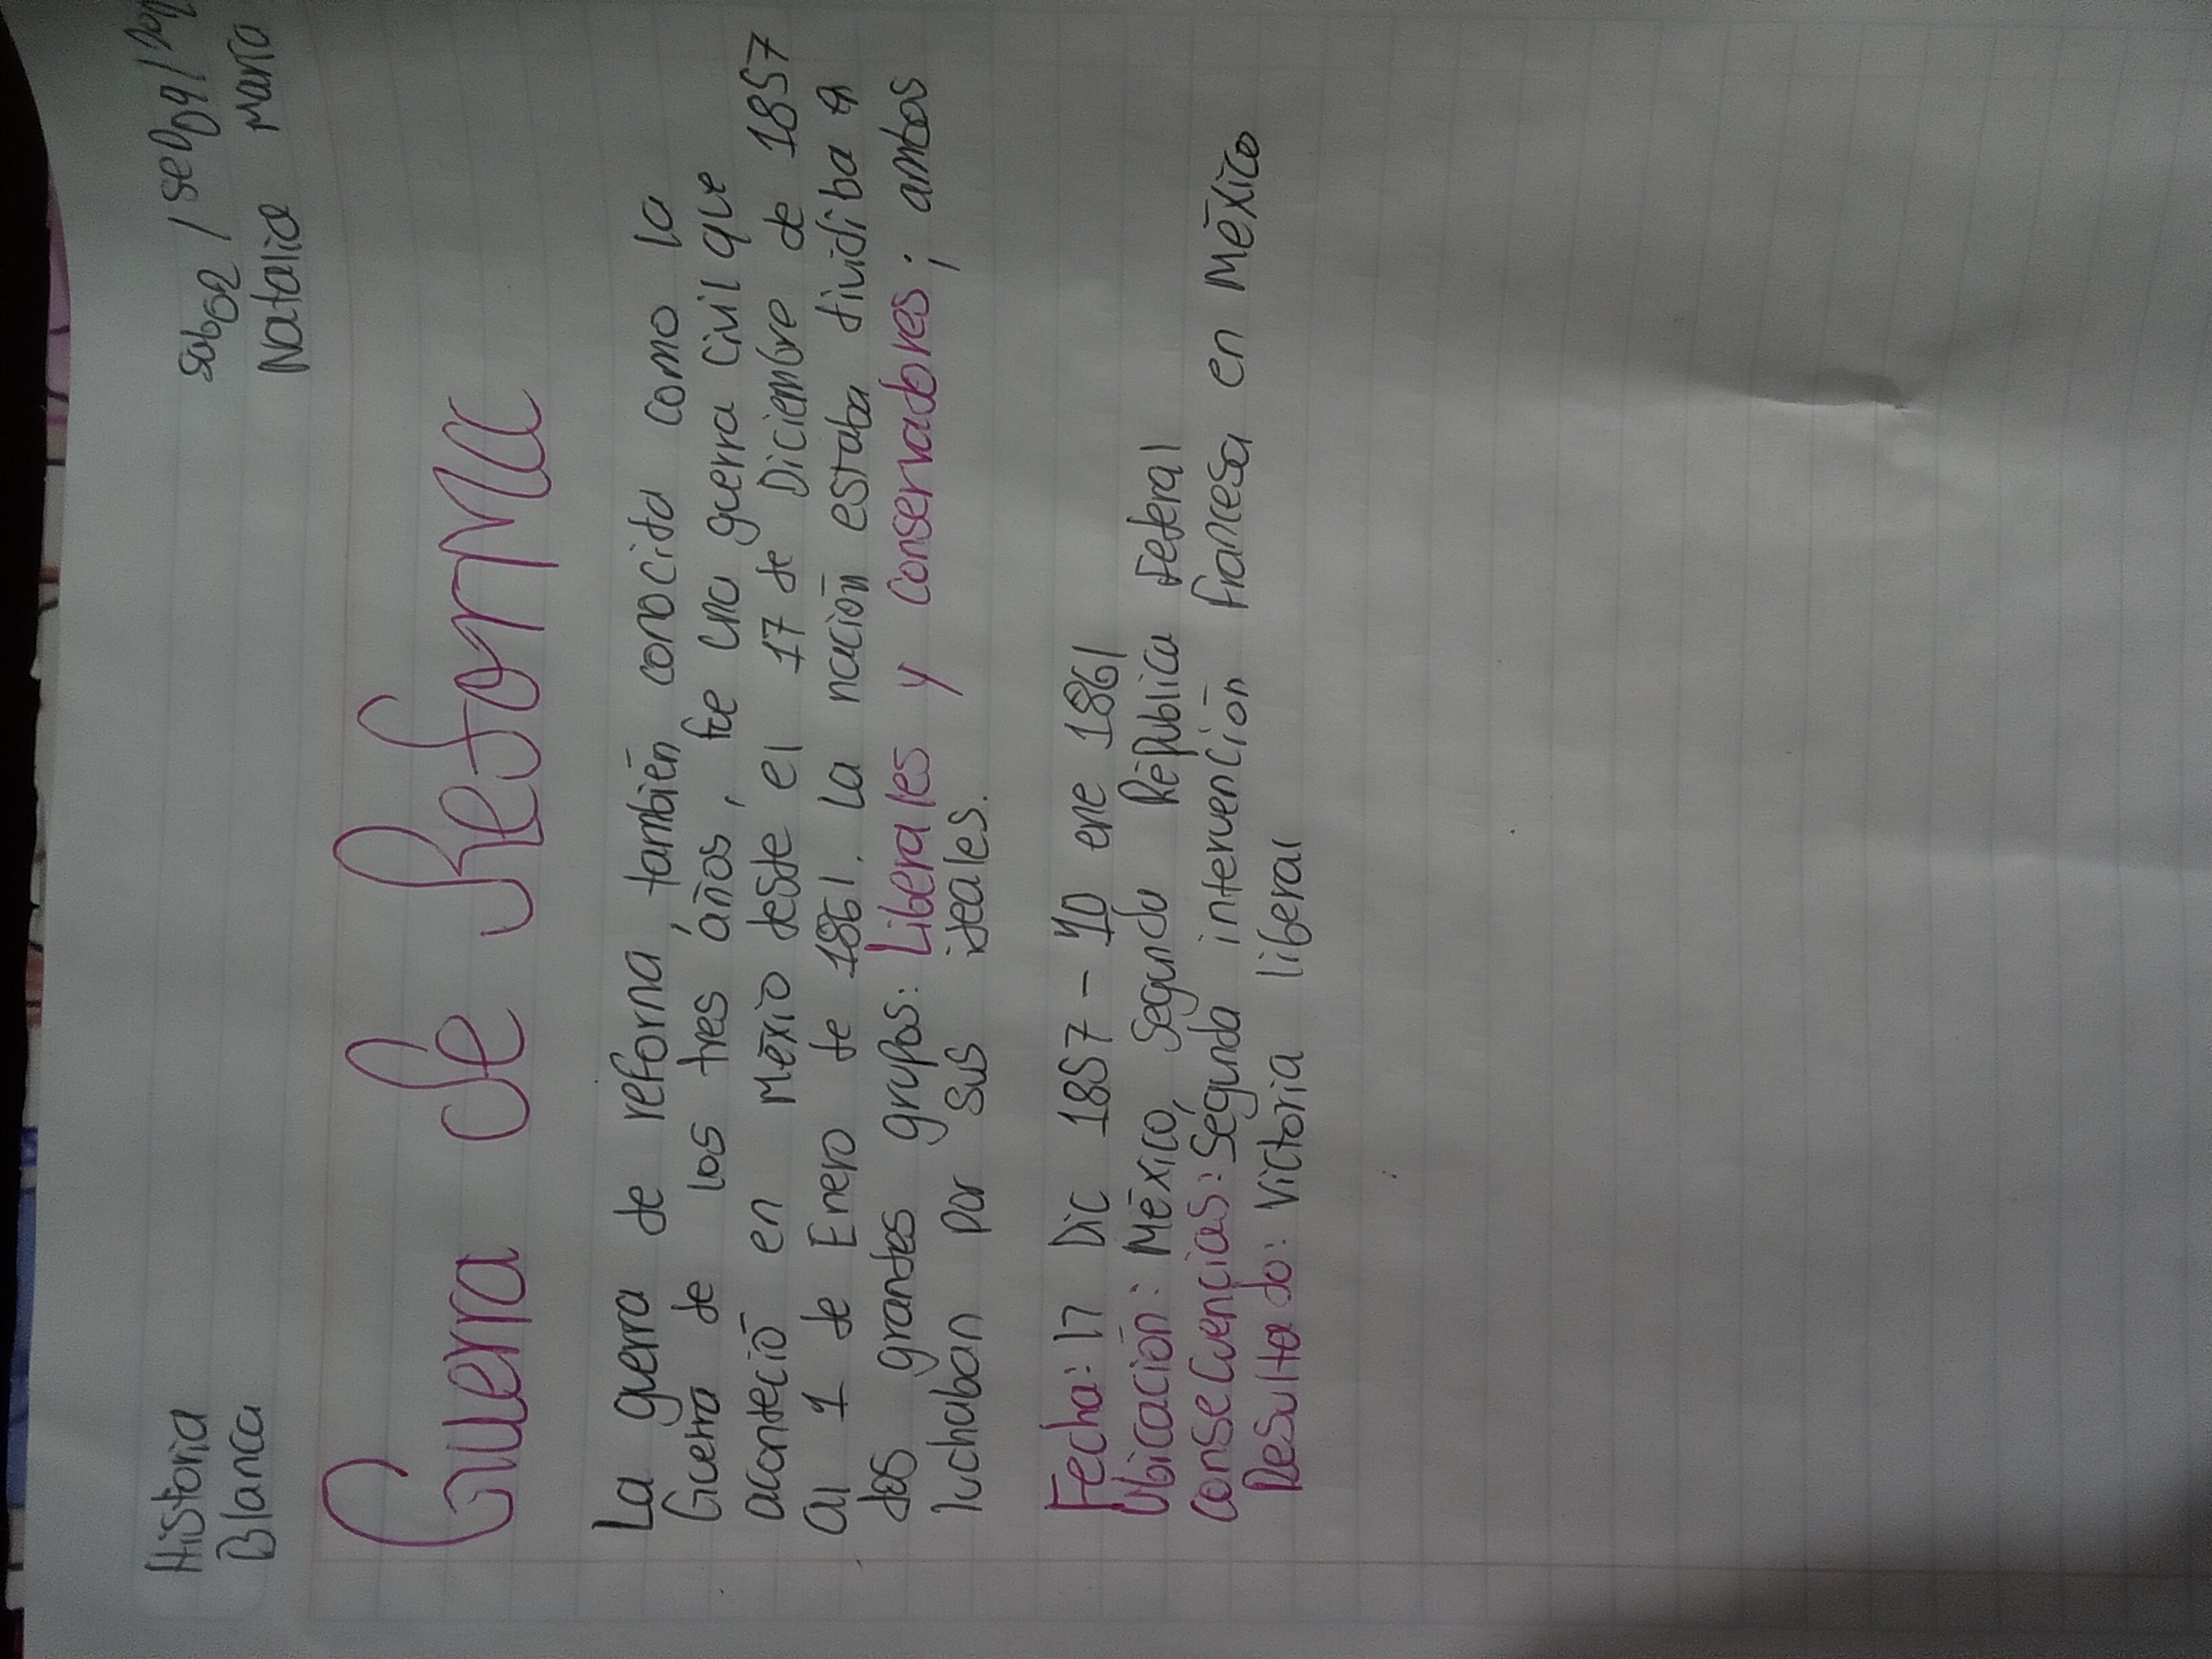 Historia
Blanca
Natalia María
Guerra de Reforma
La guerra de reforma, también conocida como la
Guerra de los tres años, fue una guerra civil que
aconteció en Méxio desde el 17 de Diciembre de 1857
al 1 de Enero de 1861. La nación estaba dividiba a
dos grandes grupos: Liberales y conservadores; ambos
luchaban por sus ideales.
Fecha: 17 Dic 1857 - 10 ene 1861
Ubicación: México, Segunda República Federal
Consecuencias: Segunda intervención francesa en México
Resultado: Victoria liberal